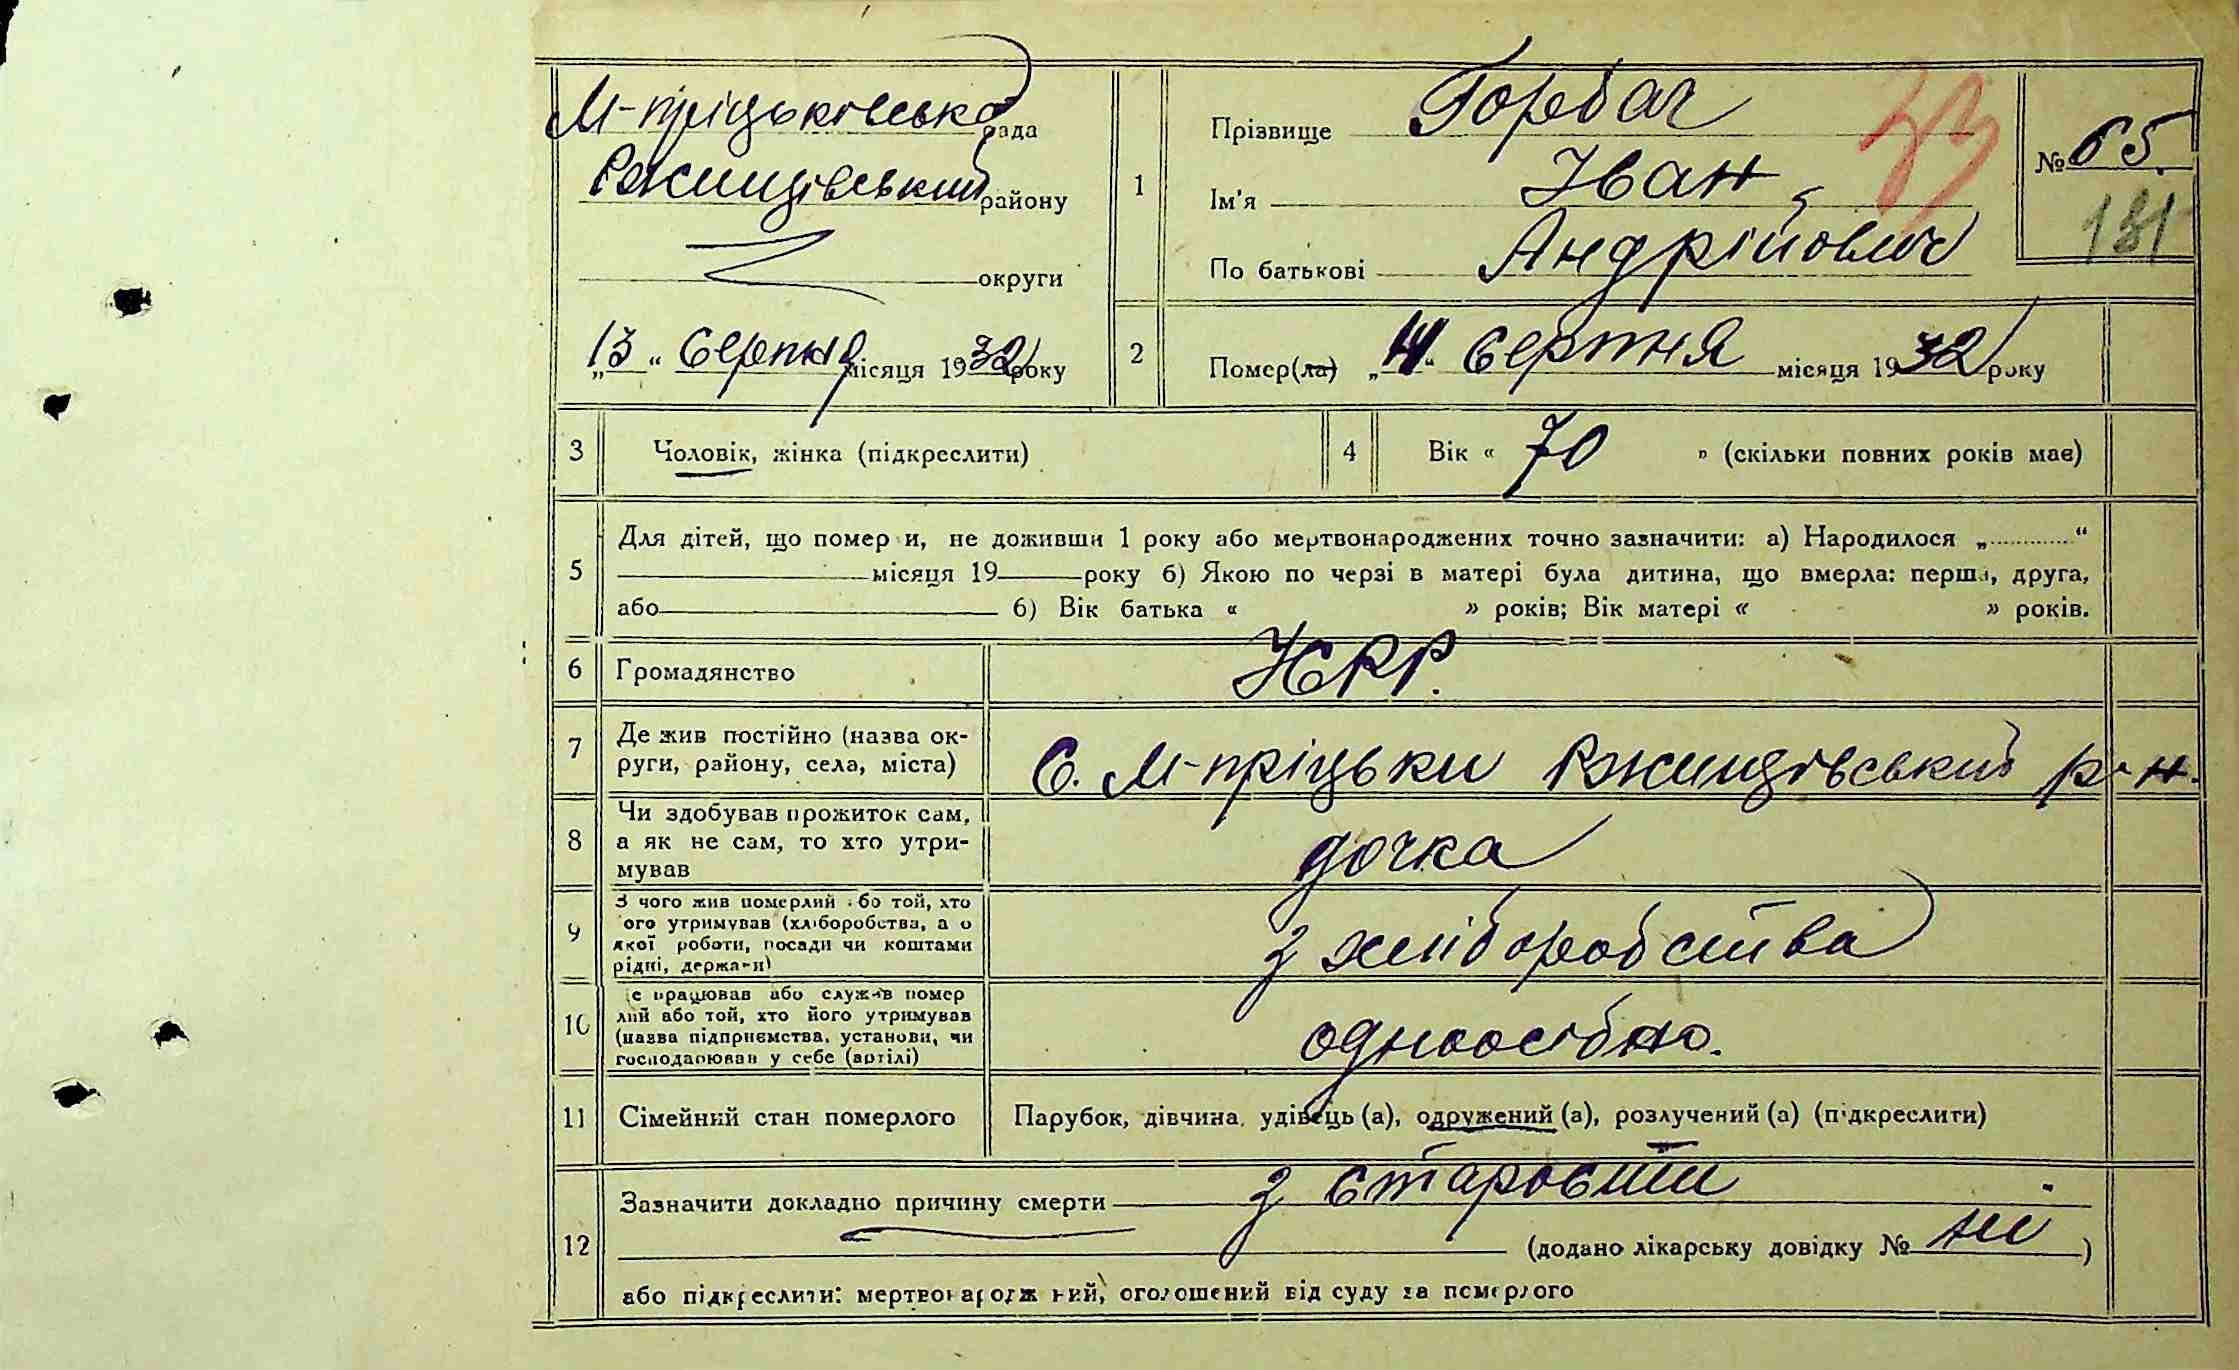 М-пріцьківська рада
Ржищівський району
округи
„13“ Серпня місяця 1932 року
1
Прізвище Горбач
Ім'я Іван
По батькові Андрійович
№ 65.
181
2
Помер(ла) „11“ Серпня місяця 1932 року
3
Чоловік, жінка (підкреслити)
4
Вік « 70 » (скільки повних років має)
5
Для дітей, що помер и, не доживши 1 року або мертвонароджених точно зазначити: а) Народилося „............“
місяця 19 року б) Якою по черзі в матері була дитина, що вмерла: перша, друга,
або б) Вік батька « » років; Вік матері « » років.
6
Громадянство
УСРР.
7
Де жив постійно (назва ок-
руги, району, села, міста)
С. М-пріцьки Ржищівський р-н.
8
Чи здобував прожиток сам,
а як не сам, то хто утри-
мував
дочка
9
З чого жив померлий або той, хто
ого утримував (хліборобства, а о
якої роботи, посади чи коштами
рідні, держави)
з хліборобства
10
е працював або служив помер
лий або той, хто його утримував
(назва підприємства, установи, чи
господарював у себе (артілі)
одноосібно.
11
Сімейний стан померлого
Парубок, дівчина, удівець (а), одружений (а), розлучений (а) (підкреслити)
12
Зазначити докладно причину смерти з старости
(додано лікарську довідку № ні)
або підкреслити: мертвонароджений, оголошений від суду за померлого